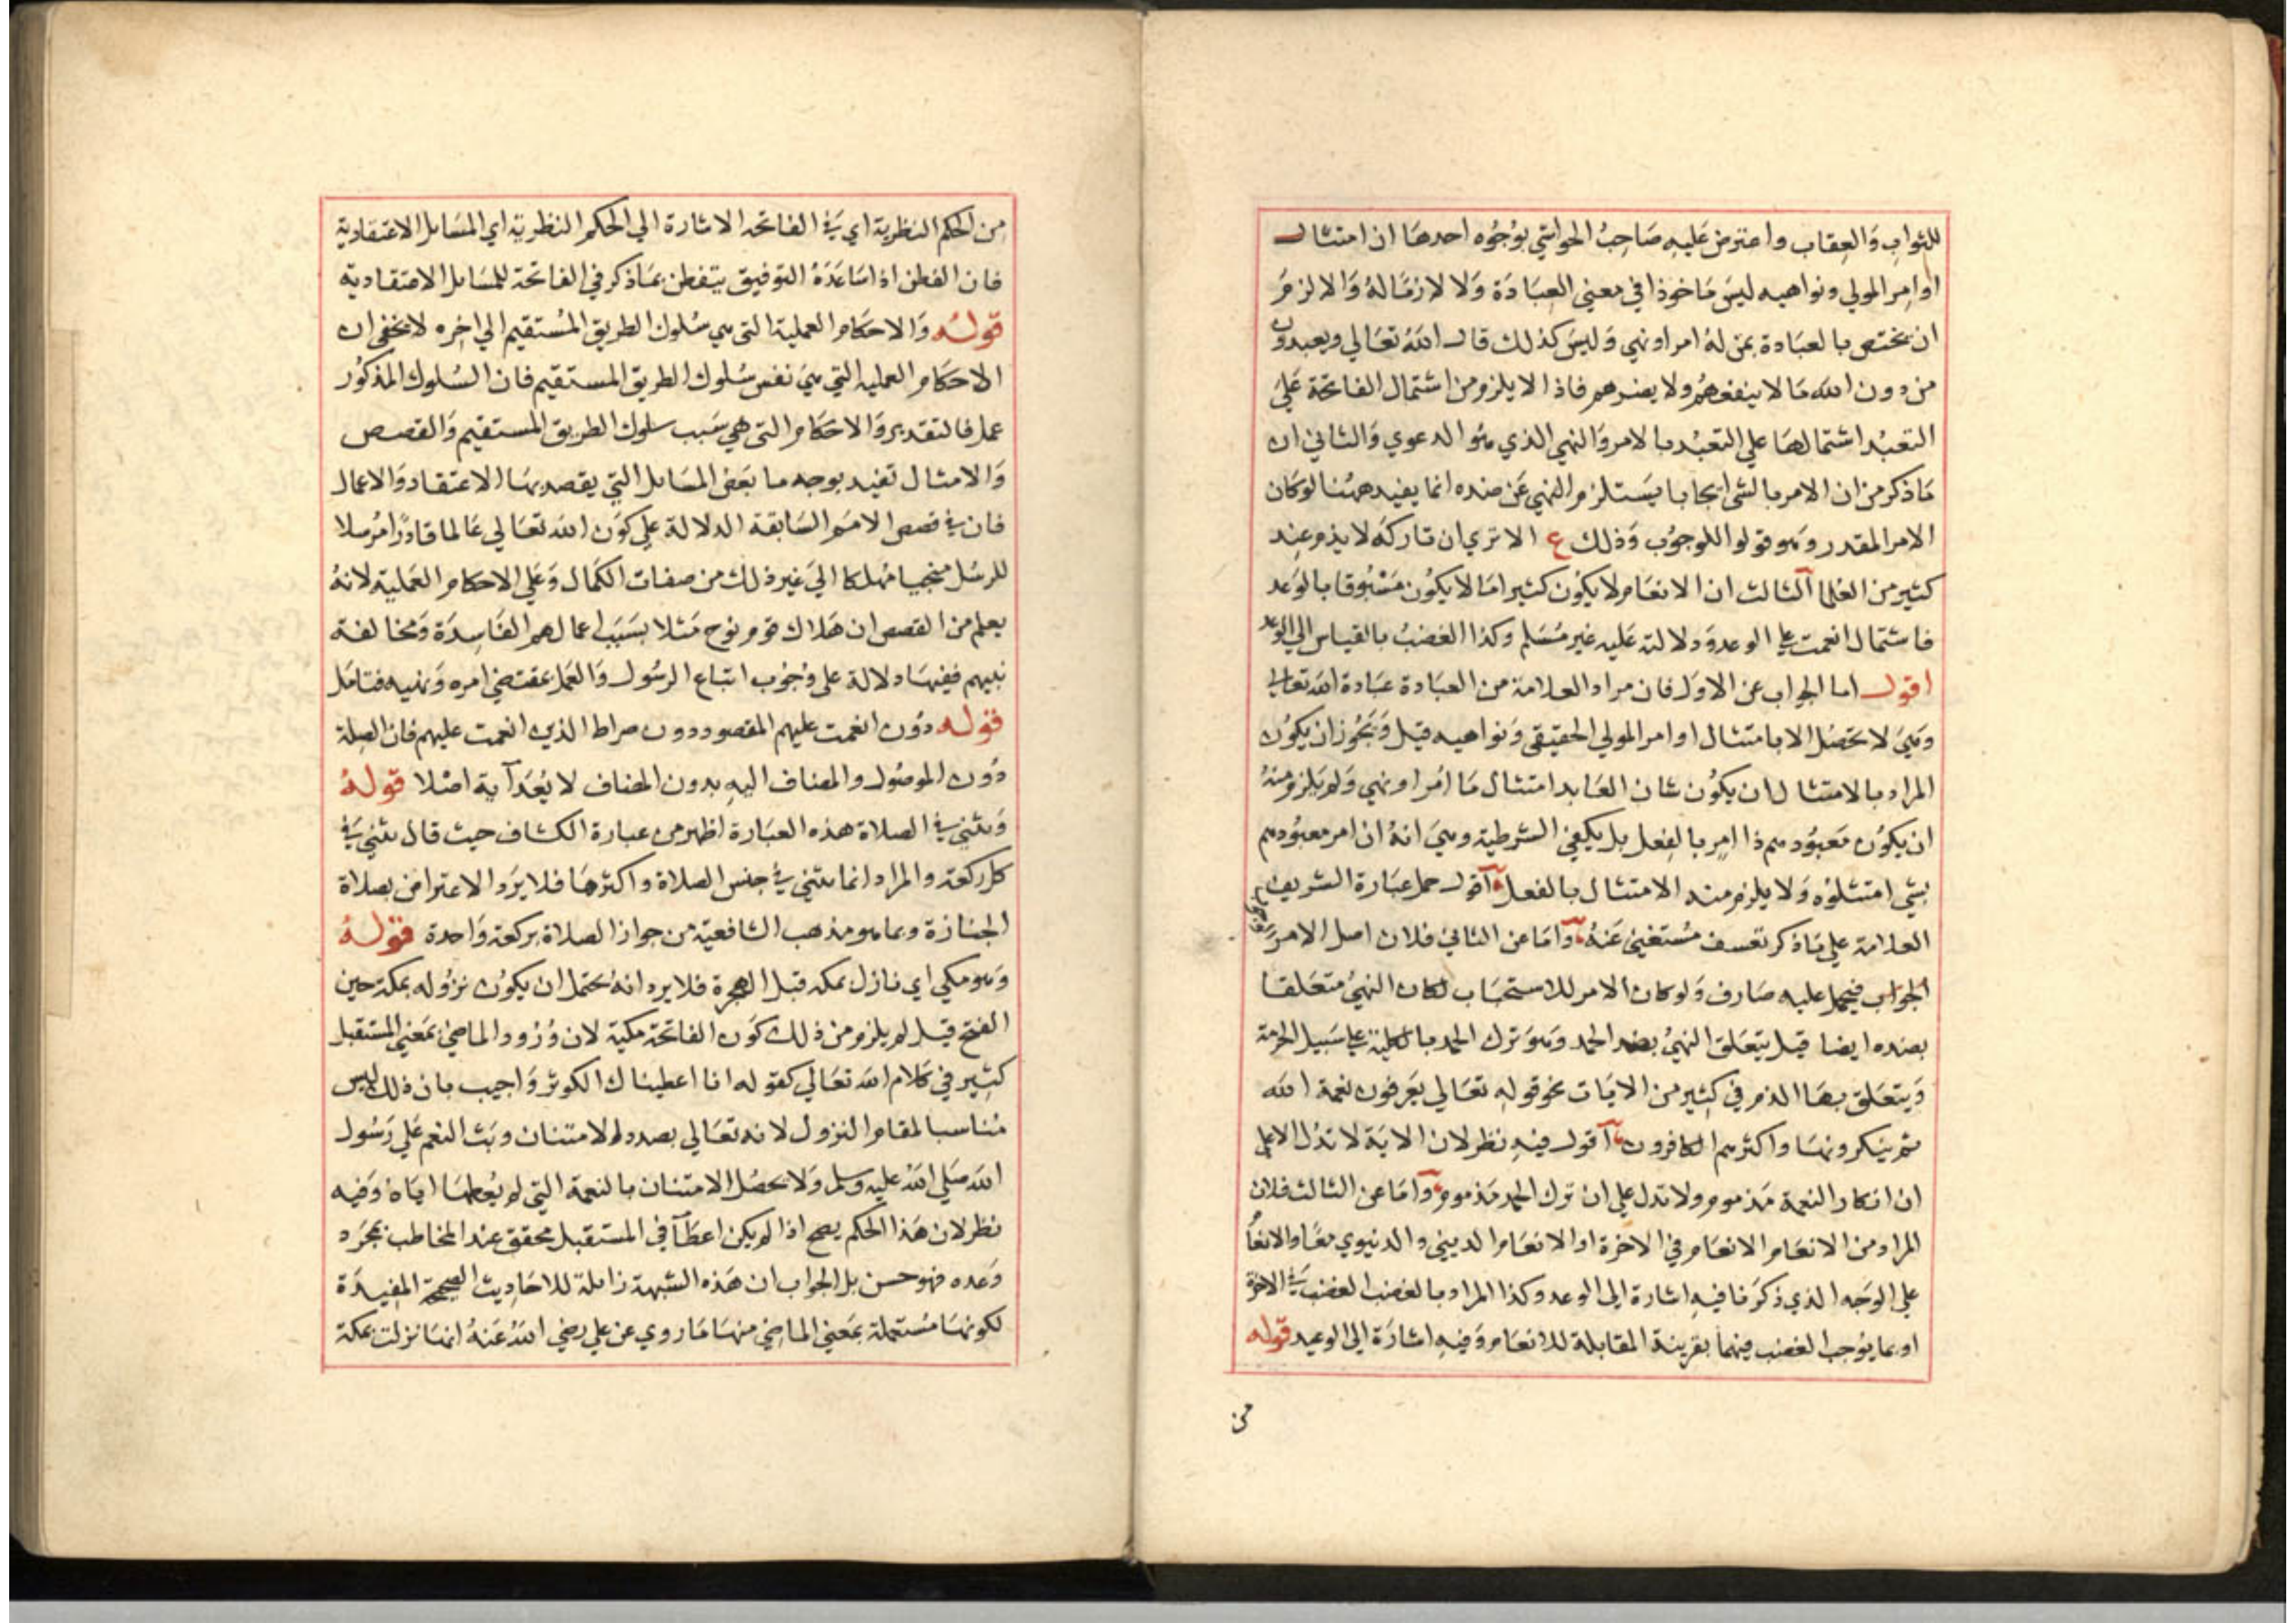 للثواب وَالعِقاب واعترض عَليهِ صَاحِبُ الحواشي بوُجُوه احدهَا ان امتثال
اوامِر المولي ونواهيه ليسَ مَاخوذا في معني العِبَادَة وَلا لازمَا لهُ وَالا لزمَ
ان يختص بالعبَادة بمَن لهُ امر او نهي وَليسَ كذلك قال اللهُ تعَالي ويعبدون
من دون الله مَا لا ينفعهُم ولا يضرهم فاذا لا يلزم من اشتمال الفاتحة عَليَ
التعبُد اشتمالهَا علي التعبُد بالامر وَالنهي الذي هُو الدعوي وَالثاني ان
مَا ذكر من ان الامر بالشى ايجابا يسَتلزم النهي عَن ضده انما يفيد ههُنا لو كان
الامر المقدر وهو قولوا للوجوُب وَذلك ع الا تري ان تاركَه لا يذم عِند
كثير من العُلما الثالث ان الانعَام لا يكوُن كثيرا مَا لا يكوُن مَسْبُوقا بالوَعد
فاشتمال انعمت علي الوعد وَدلالته عَليه غير مُسَلم وكذا الغضبُ بالقياس الي الوعد
اقول اما الجواب عن الاوَل فان مراد العلامة من العبَادة عبَادة الله تعالي
وهيَ لا تحصُل الا بامتثال اوامر المولي الحقيقي وَنواهيه قيل وَيَجُوز ان يكوُن
المراد بالامتثال ان يكوُن شان العَابد امتثال مَا امُر او نهي وَلم يَلزم منهُ
ان يكوُن مَعبوُدهم ذا امِر بالفِعل بل يكفي الشرطية وهيَ انهُ ان امر معبوُدهم
بشي امتثلوُه وَلا يلزم منه الامتثال بالفعل اقول حمل عبَارة الشريف
العلامة علي مَا ذكر تعسف مُستغني عَنهُ وَامَا عن الثاني فلان اصل الامر
الجواب فيحمل عليه صَارف وَلو كان الامر للاستحبَاب لكان النهيُ متعَلقا
بضده ايضا قيل يتعَلق النهيُ بضد الحمد وَهوَ ترك الحمد بالكلية علي سَبيل الحرمة
وَيتعَلق بهَا الذم في كثير من الايَات نحو قولهِ تعَالي يعَرفون نعمة الله
ثم ينكرونهَا واكثرهم الكافرون اقول فيهِ نظر لان الايَة لا تدُل الا علي
ان انكار النعمة مَذموم ولا تدل علي ان ترك الحمد مَذموم وَامَا عن الثالث فلان
المراد من الانعَام الانعَام في الاخرة او الانعَام الديني والدنيوي معًا والانعَام
علي الوَجه الذي ذكرَنا فيهِ اشارة الي الوعد وكذا المراد بالغضب الغضب في الاخرة
او بما يوُجب الغضب فيهما بقرينة المقابلة للانعَام وَفيهِ اشارَة الي الوعيد قوله
من
من الحكم النظرية اي في الفاتحه الاشارة الي الحكم النظرية اي المسَايل الاعتقادية
فان الفطن اذا سَاعَدَهُ التوفيق يتفطن بمَا ذكر في الفاتحة للمسَايل الاعتقادية
قولهُ وَالاحكام العملية التى هي سُلوك الطريق المُستقيم الي اخِره لا يخفي ان
الاحكام العمليه التي هيَ نفس سُلوك الطريق المستقيم فان السُلوك المذكوُر
عمل فالتقدير وَالاحكام التى هي سَبب سلوك الطريق المستقيم وَالقصص
وَالامثال تفيد بوجه ما بَعَض المسَايل التي يقصد بهَا الاعتقاد وَالاعمال
فان في قصص الامَم السَابقة الدلالة علي كوَن الله تعَالي عَالما قادرًا مُرسلا
للرسُل منجيا مُهلكا اليَ غير ذلك من صفات الكَمال وَعَلي الاحكام العَملية لانهُ
يعلم من القصص ان هَلاك قوم نوح مَثلا بسَبَب اعمالهم الفَاسِدَة وَمخالفة
نبيهم ففيهَا دلالة على وُجُوب اتباع الرسُول وَالعَمل بمقتضي امره وَنهيه فتامَل
قوله دوُن انعمت عليهم المقصود دون صراط الذين انعمت عليهم فان الصِلة
دوُن الموصُول والمضاف اليهِ بدون المضاف لا يُعَد آية اصْلا قولهُ
وَيثني في الصلاة هذه العبَارة اظهر من عبارة الكشاف حيث قال يثني في
كل ركعة والمراد انما يثني في جنس الصلاة واكثرهَا فلا يرَد الاعتراض بصَلاة
الجنازة وبما هو مذهب الشافعية من جواز الصلاة بركعة وَاحدة قولهُ
وَهو مكي اي نازل بمكه قبل الهجرة فلا يرد انهُ يحتمل ان يكوُن نزوُله بمكة حين
الفتح قيل لم يلزم من ذلك كوَن الفاتحة مكية لان وُرُود الماضي بمَعني المستقبل
كثِير في كلام الله تعَالي كقوله انا اعطيناك الكوثر وَاجيب بان ذلك ليس
مُناسبا لمقام النزول لانه تعَالي بصدد الامتنان وبَث النعم عَلي رَسُول
الله صَلي اللهُ عليه وسلم وَلا يحصُل الامتنان بالنعمة التي لم يُعطهَا ايَاه وَفيه
نظر لان هَذا الحكم يصح اذا لم يكن اعطَآ في المستقبل محقق عند المخاطب بمجَرد
وَعده فهو حسن بل الجواب ان هَذه الشبهة زايلة للاحَاديث الصحيحة المفيدَة
لكونهَا مُستعملة بمَعني الماضي منهَا مَا روي عن علي رضي اللهُ عَنهُ انهَا نزلت بمكة